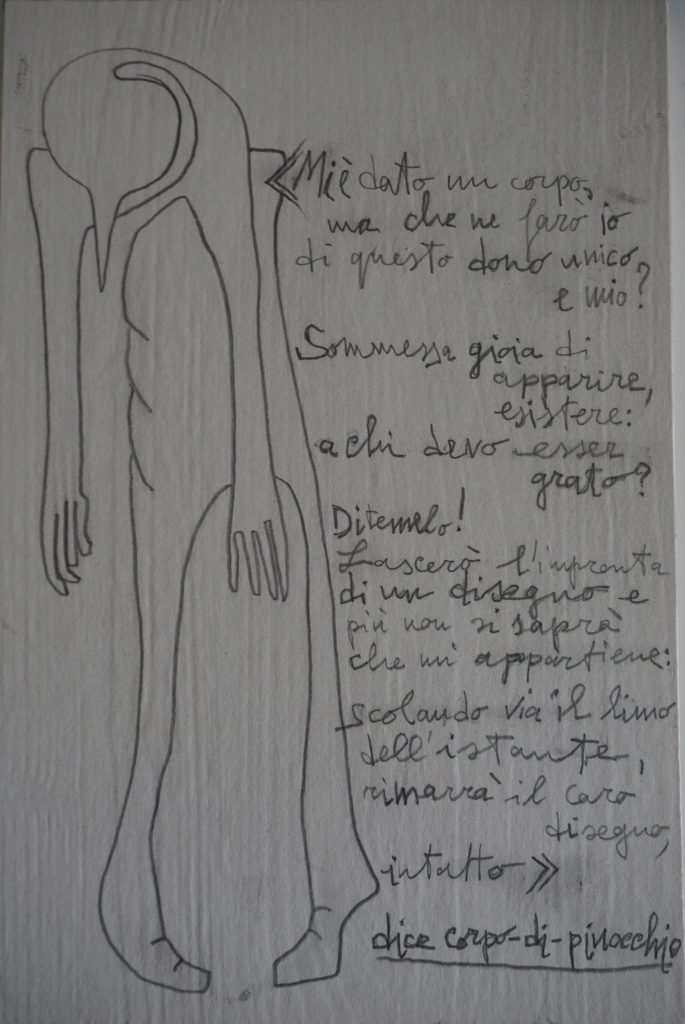 «Mi è dato un corpo,
ma che ne farò io
di questo dono unico
e mio?
Sommessa gioia di
apparire,
esistere:
a chi devo esser
grato?
Ditemelo!
Lascerò l'impronta
di un disegno e
più non si saprà
che mi appartiene:
scolando via il limo
dell'istante,
rimarrà il caro
disegno,
intatto»
dice corpo-di-pinocchio